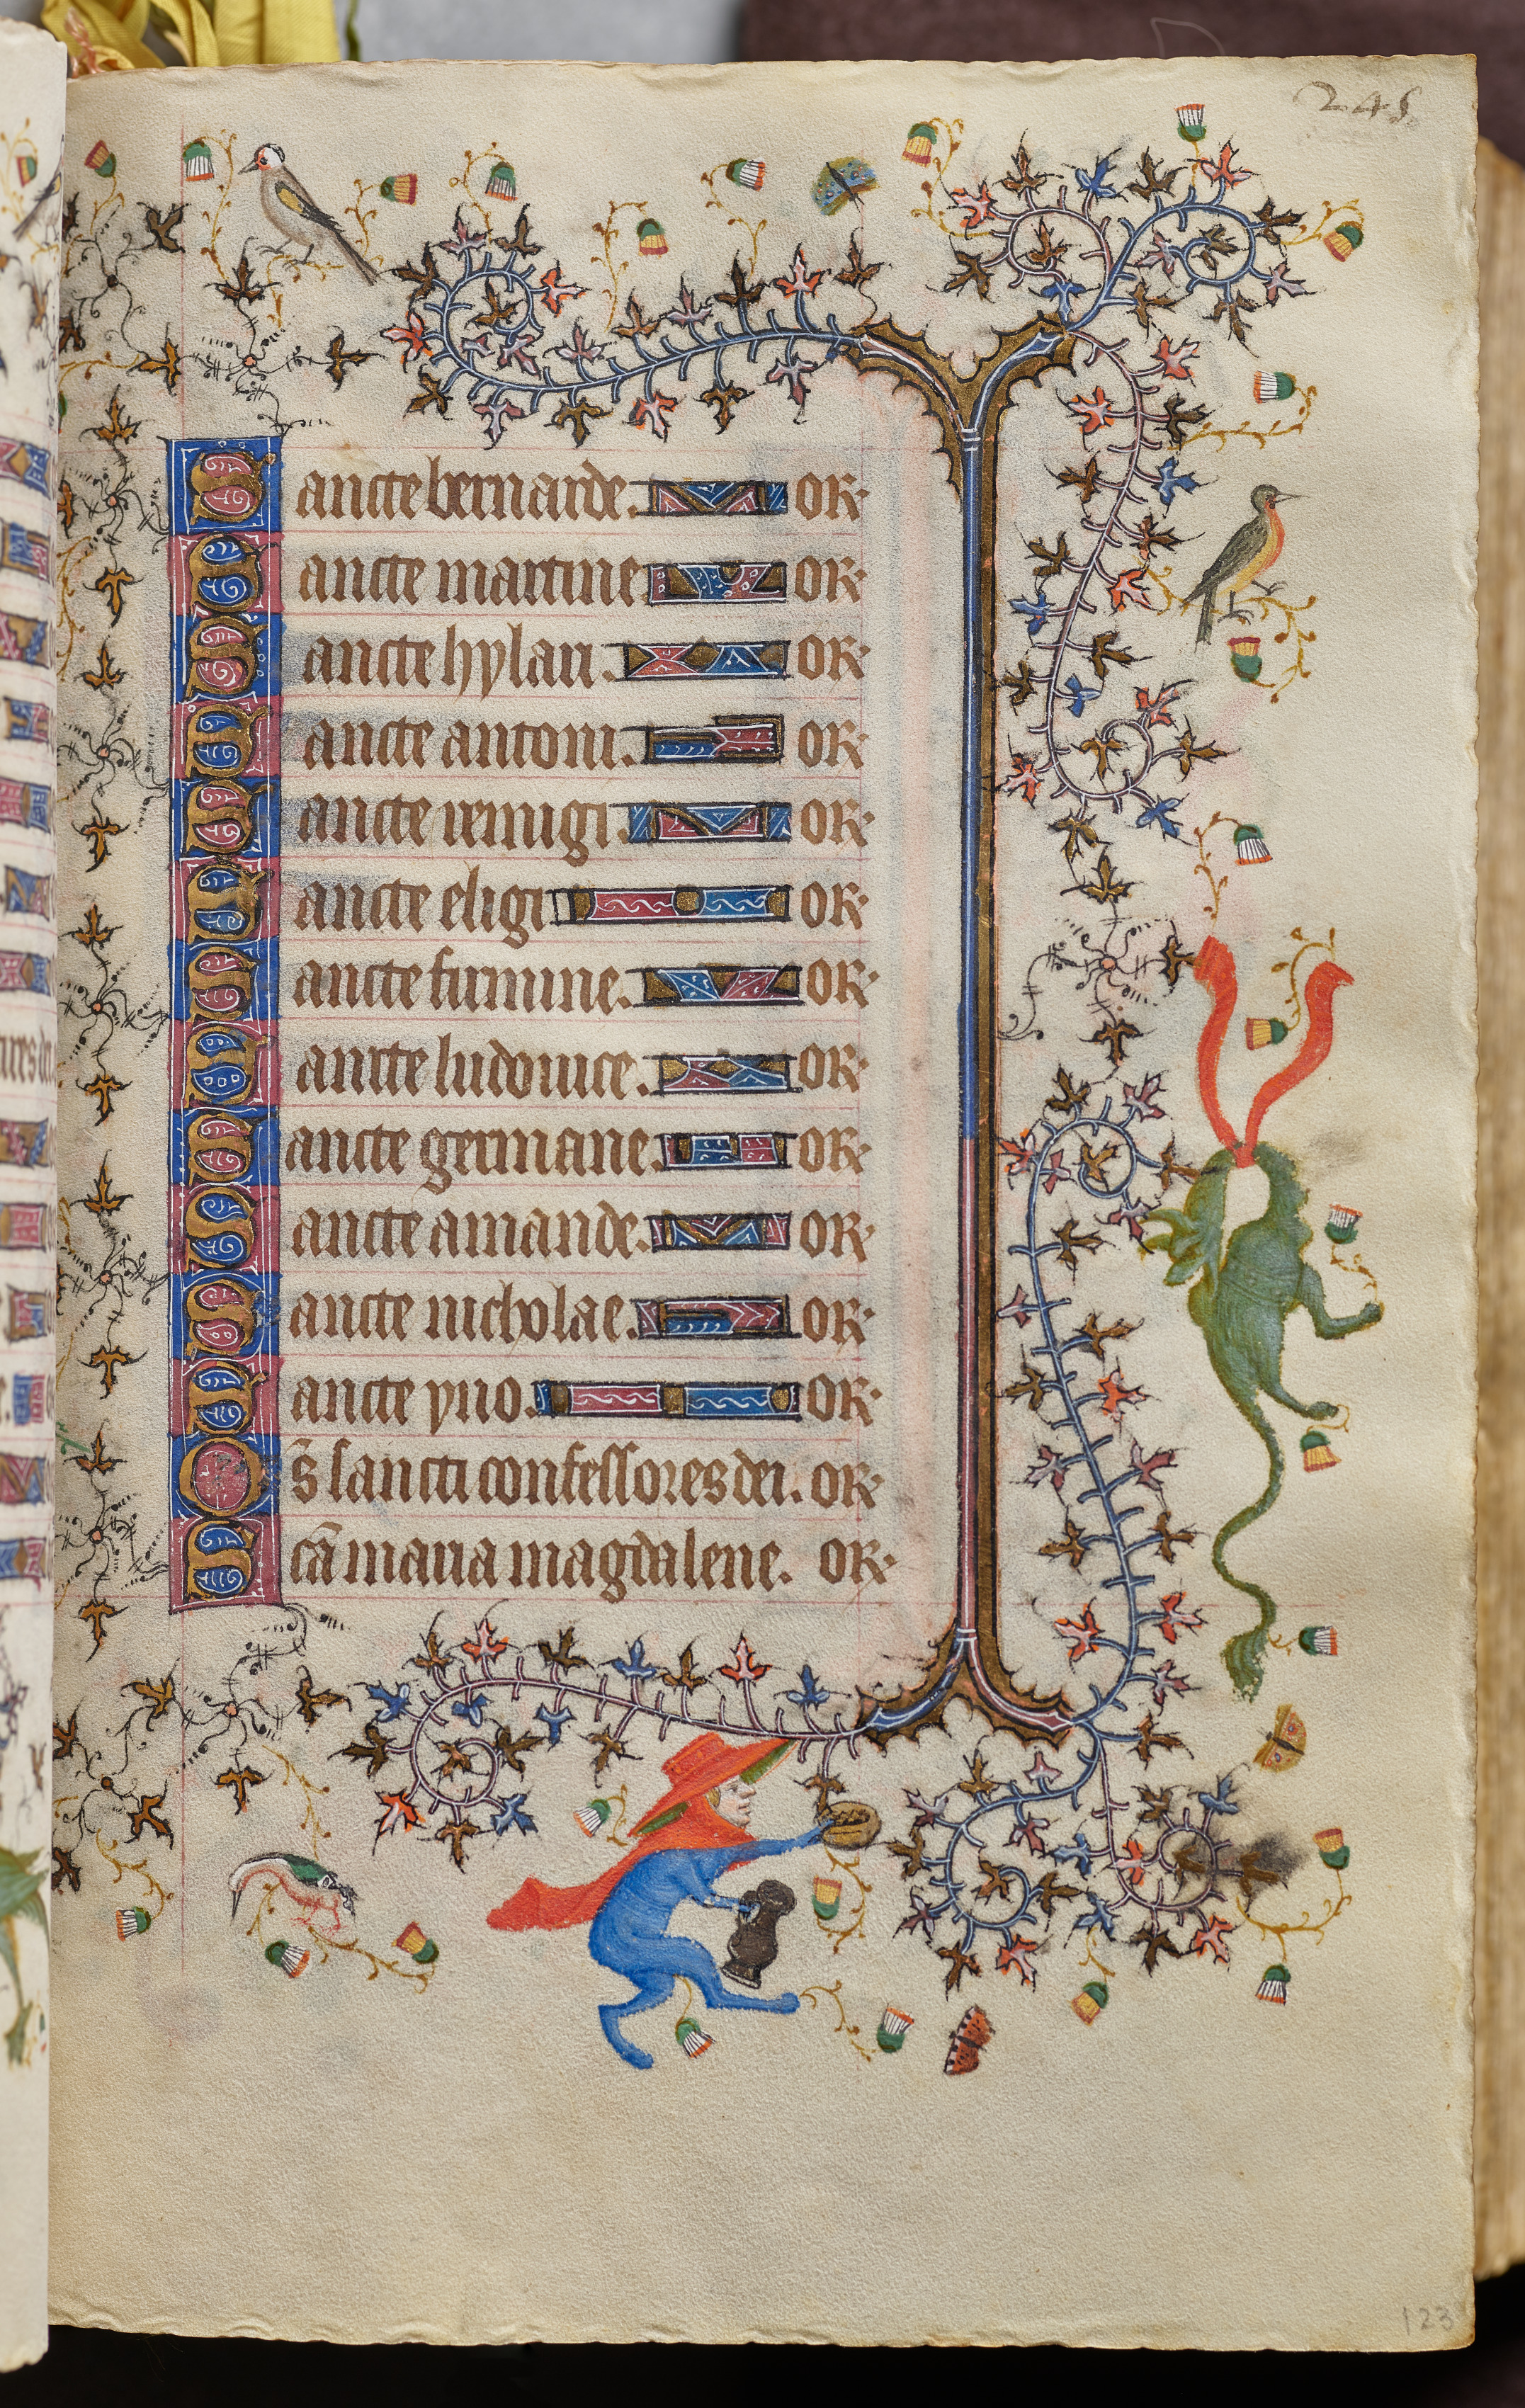 245
Sancte bernarde. OR.
Sancte martine OR.
Sancte hylari. OR.
Sancte antoni. OR.
Sancte remigi. OR.
Sancte eligi OR.
Sancte firmine. OR.
Sancte ludouice. OR.
Sancte germane. OR.
Sancte amande. OR.
Sancte nicholae. OR.
Sancte yuo. OR.
Om̅s sancti confessores dei. OR.
Sca̅ maria magdalene. OR.
123